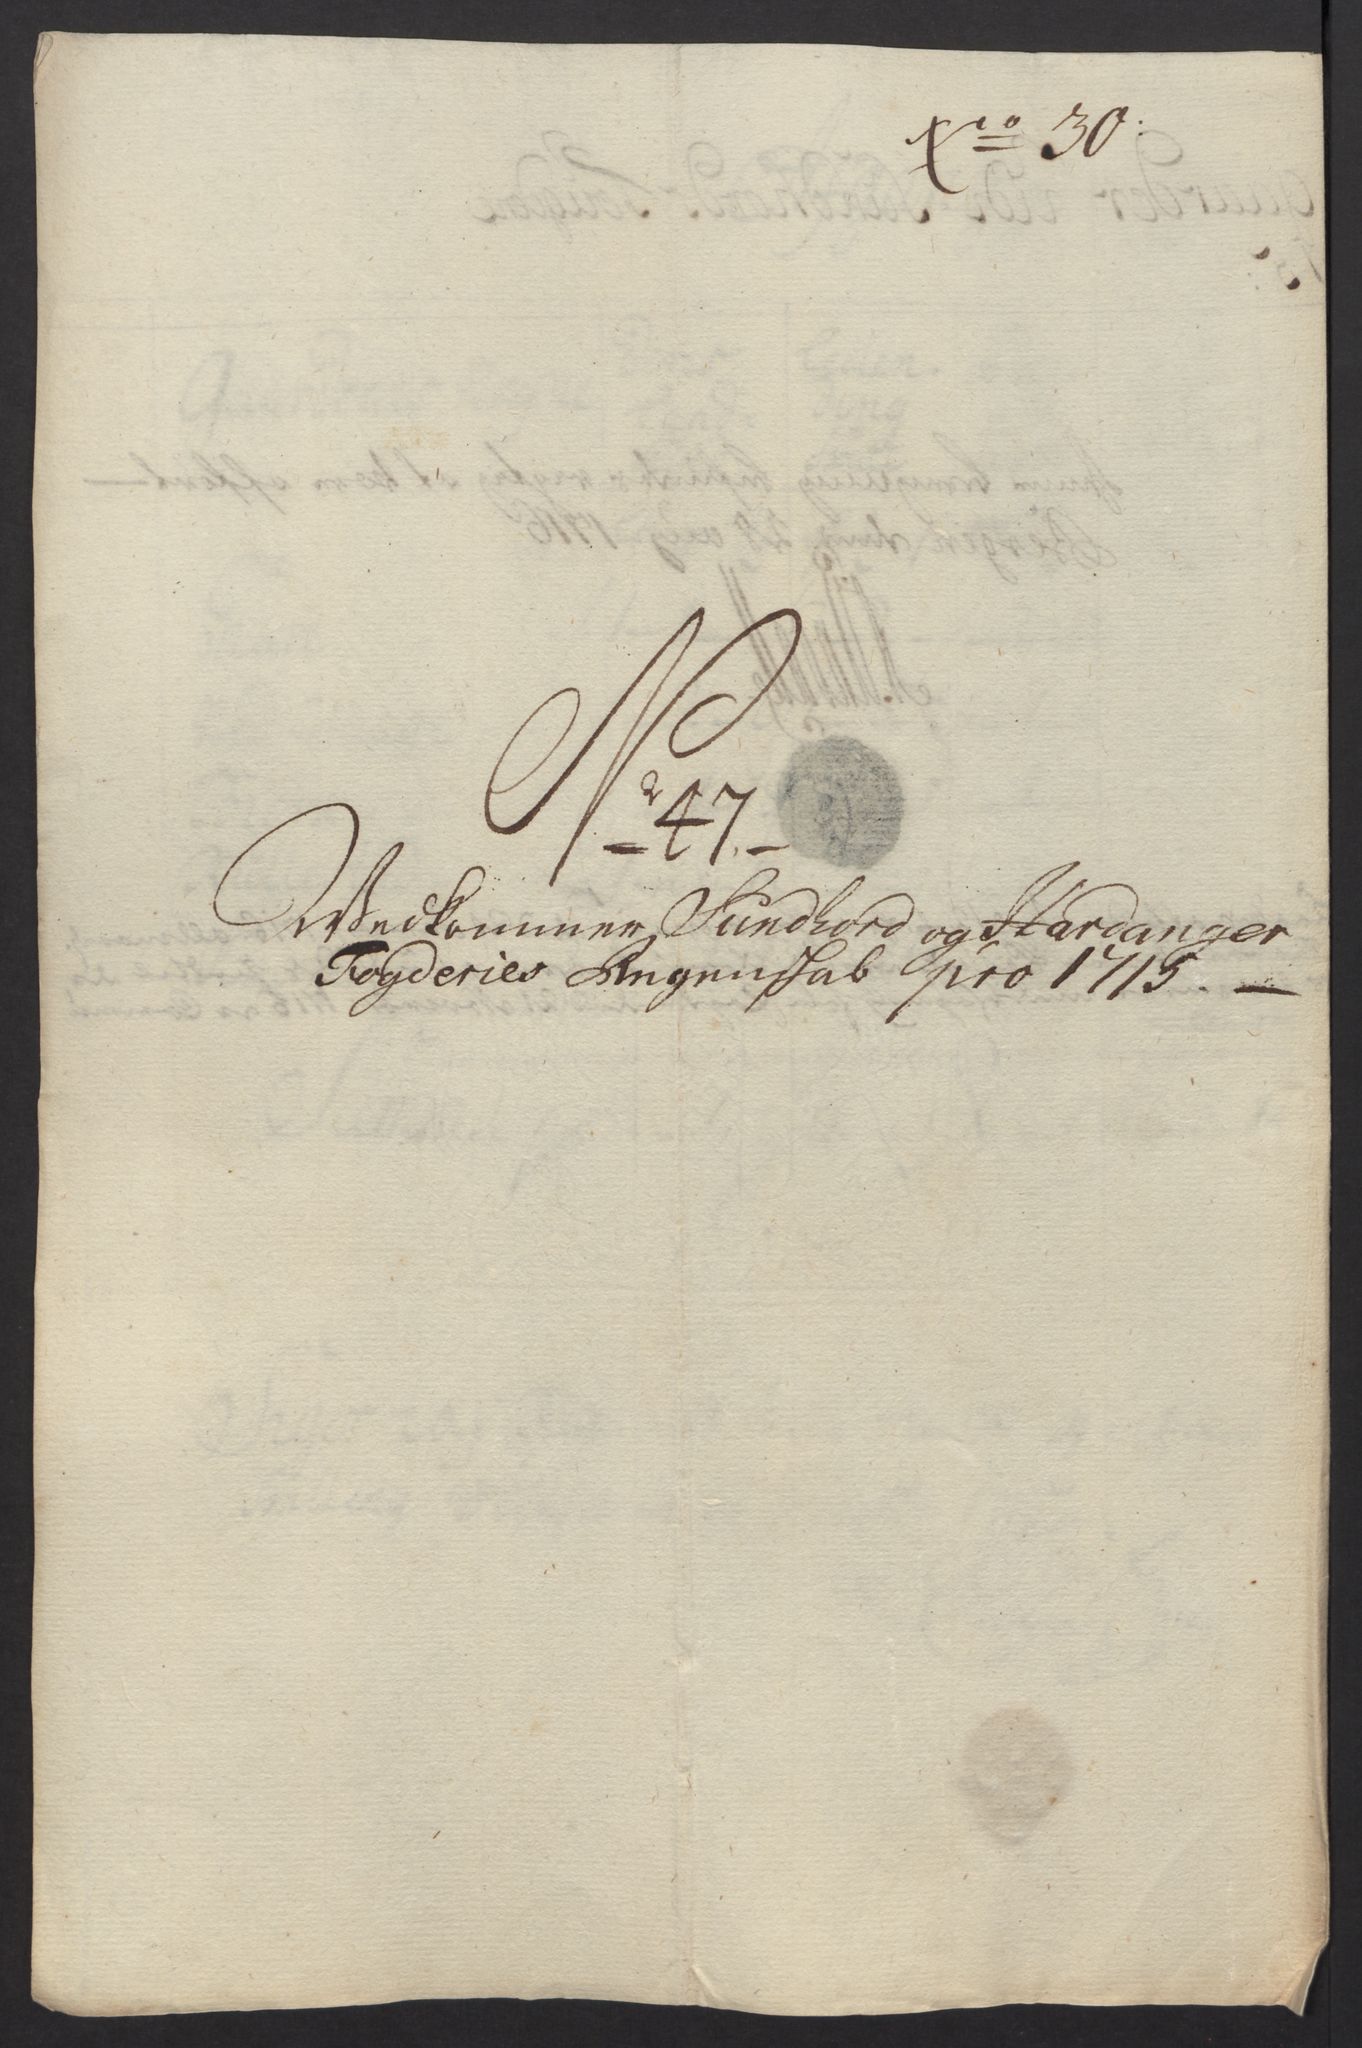 Xro 30.
No 47.
Vedkommer Sundhord og Hardanger
Fogderies Regenskab pro 1715.